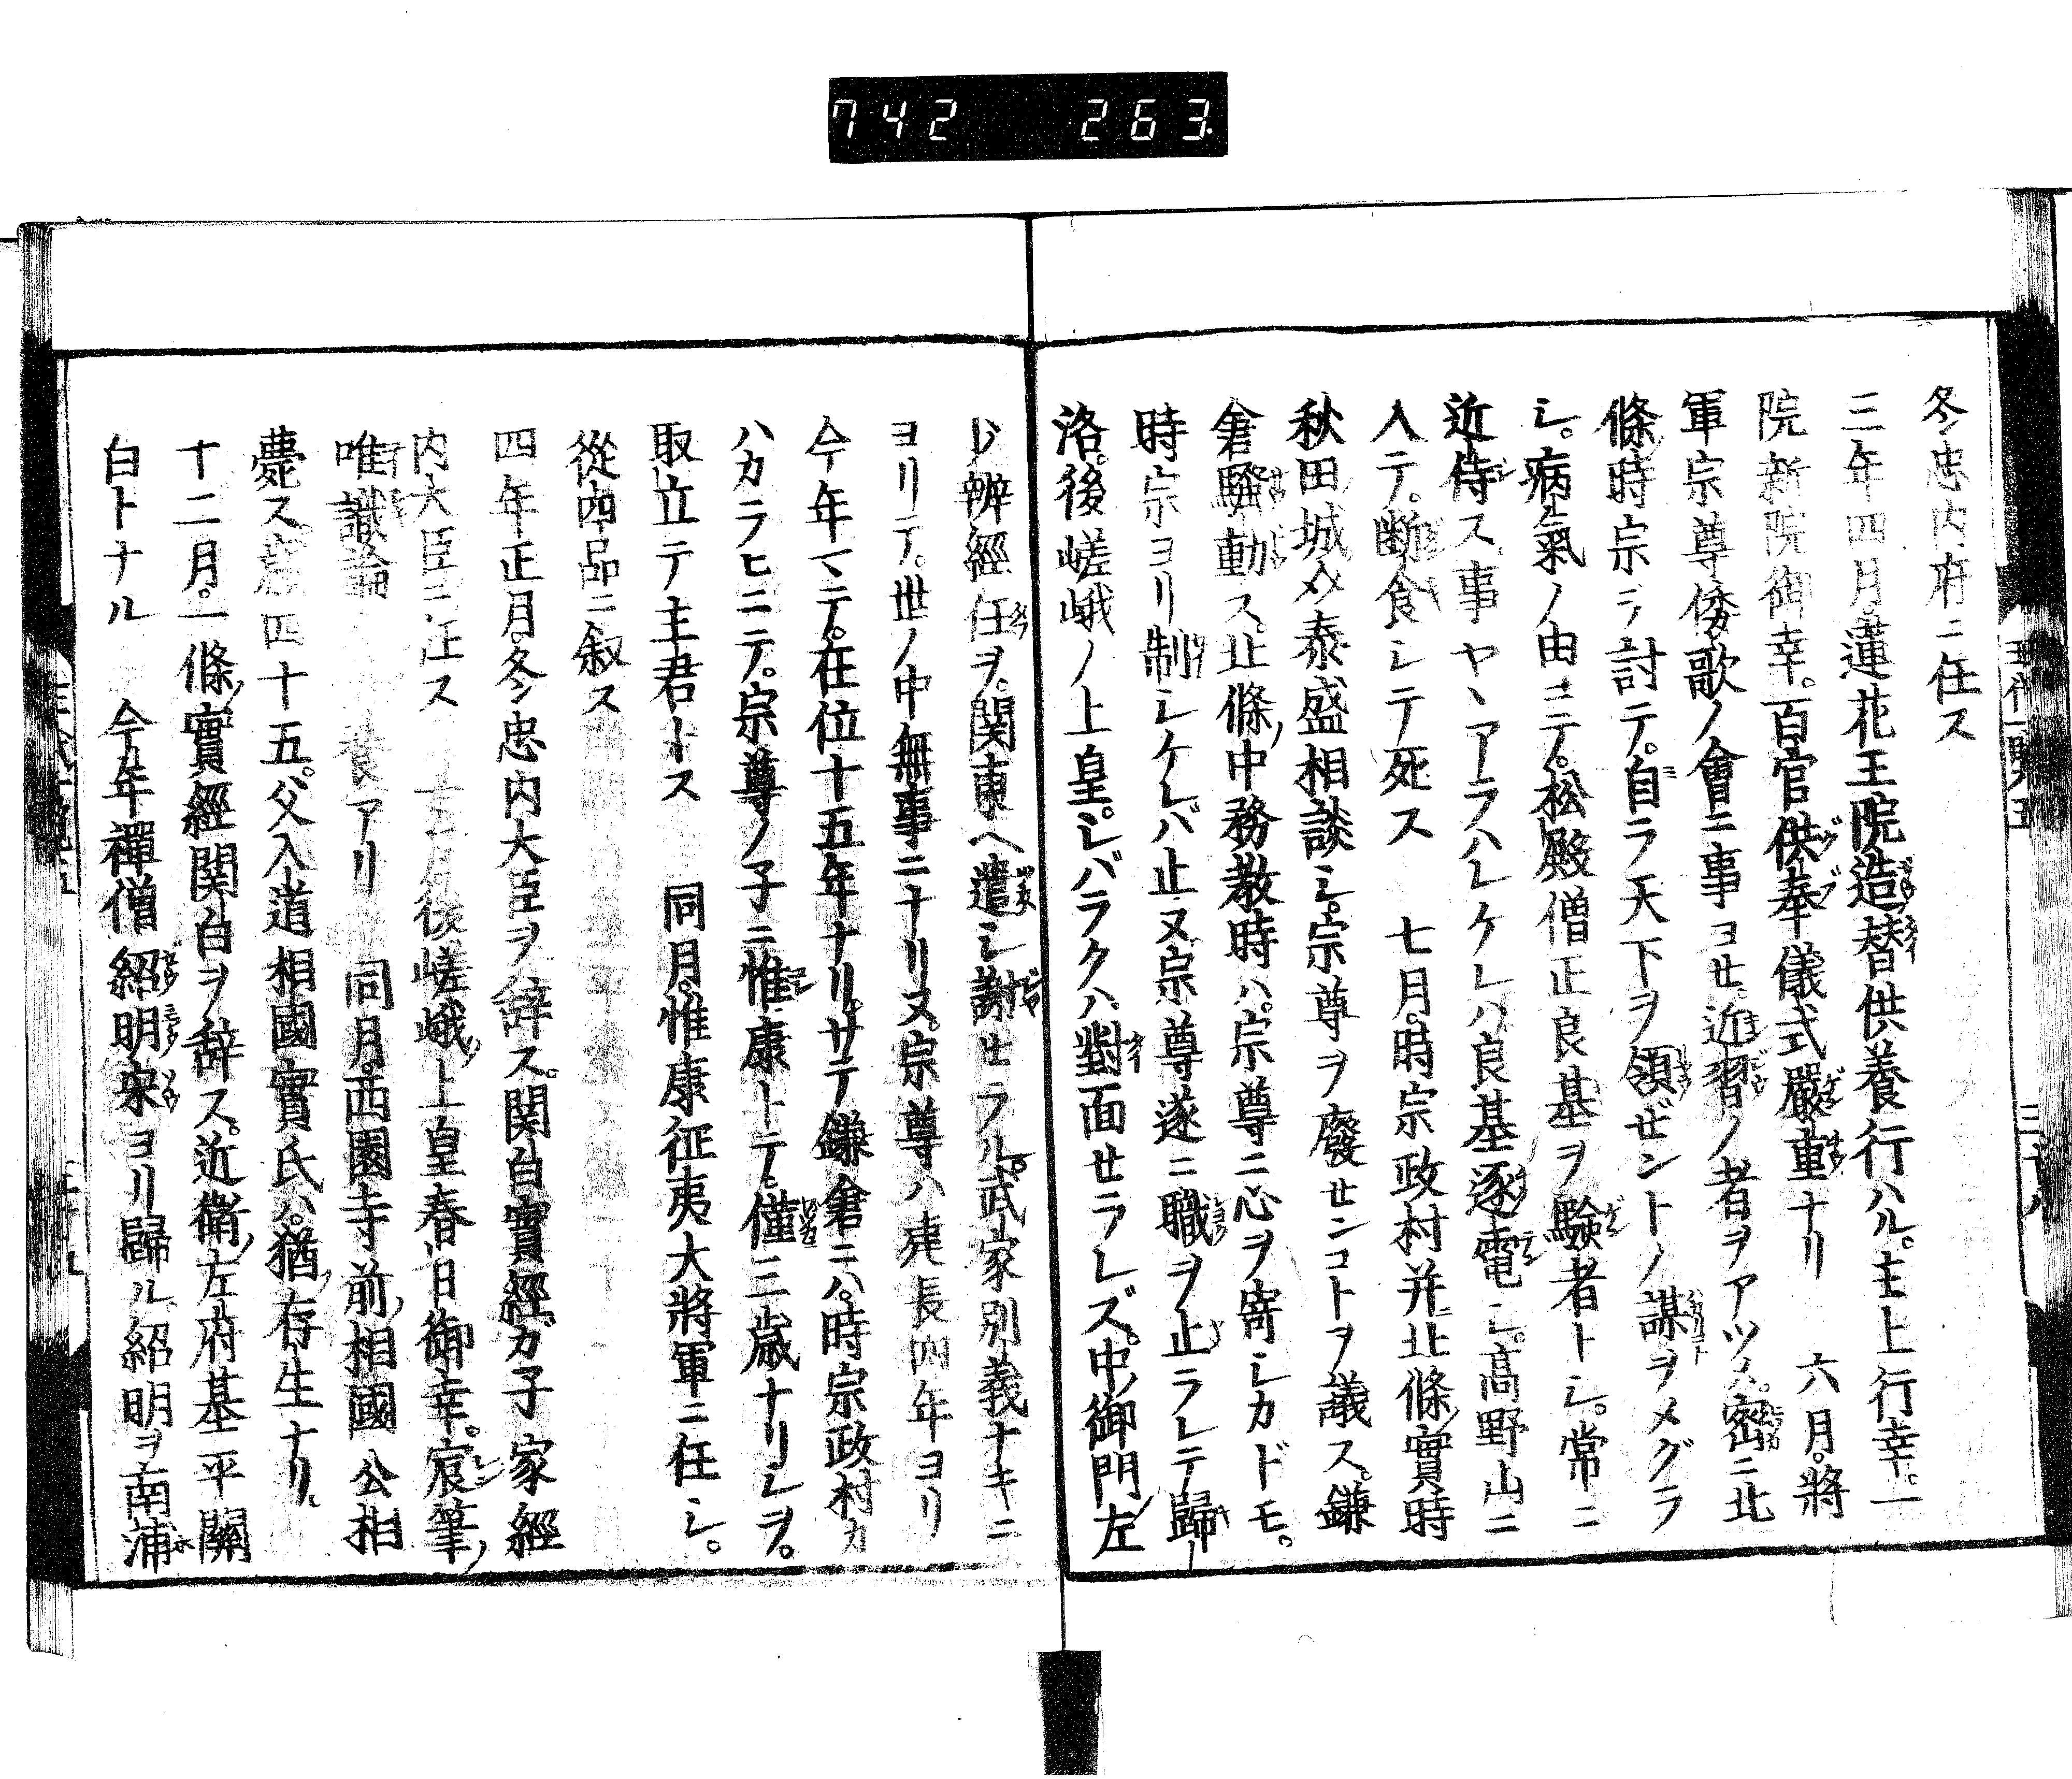 742 263
冬忠内府ニ任ス
三年四月。蓮花王院造替供養行ハル。主上行幸。一
院新院御幸。百官供奉儀式嚴重ナリ 六月。將
軍宗尊倭歌ノ會ニ事ヨセ。近習ノ者ヲアツメ。密ニ北
條時宗ヲ討テ。自ラ天下ヲ領ゼントノ謀ヲメグラ
シ。病氣ノ由ニテ。松殿僧正良基ヲ驗者トシ。常ニ
近侍ス事ヤヽアラハレケレハ良基逐電シ。高野山ニ
入テ。断食シテ死ス 七月。時宗政村并北條實時
秋田城介泰盛相談シ。宗尊ヲ廢センコトヲ議ス。鎌
倉騷動ス。北條中務教時ハ。宗尊ニ心ヲ寄シカドモ。
時宗ヨリ制シケレバ止ヌ宗尊遂ニ職ヲ止ラレテ歸
洛。後嵯峨ノ上皇。シバラクハ對面セラレズ。中御門左
辨經任ヲ。関東ヘ遣シ謝セラル。武家別義ナキニ
ヨリテ。世ノ中無事ニナリヌ。宗尊ハ建長四年ヨリ
今年マテ。在位十五年ナリ。サテ鎌倉ニハ。時宗政村カ
ハカラヒニテ。宗尊ノ子ニ惟康トテ。僅三歳ナリシヲ。
取立テ主君トス 同月。惟康征夷大將軍ニ任シ。
從四品ニ叙ス
四年正月。冬忠内大臣ヲ辞ス。関白實經カ子家經
内大臣ニ任ス 後嵯峨上皇春日御幸。宸筆
唯識論 養アリ 同月。西園寺前相國公相
薨ス歳四十五。父入道相國實氏ハ。猶存生ナリ。
十二月。一條實經関白ヲ辞ス。近衛左府基平關
白トナル 今年禪僧紹明宋ヨリ歸ル。紹明ヲ南浦